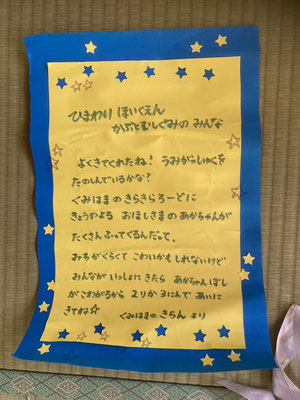 ひまわり ほいくえん
かぶとむしぐみの みんな
よくきてくれたね! うみがっしゅくを
たのしんでいるかな?
くみはまの きらきらろーどに
きょうのよる おほしさまの あかちゃんが
たくさんふってくるんだって。
みちがくらくて こわいかも しれないけど
みんなが いっしょに きたら あかちゃんぼし
が こわがるから 2りか 3にんで あいに
きてね☆
くみはまの きらん より